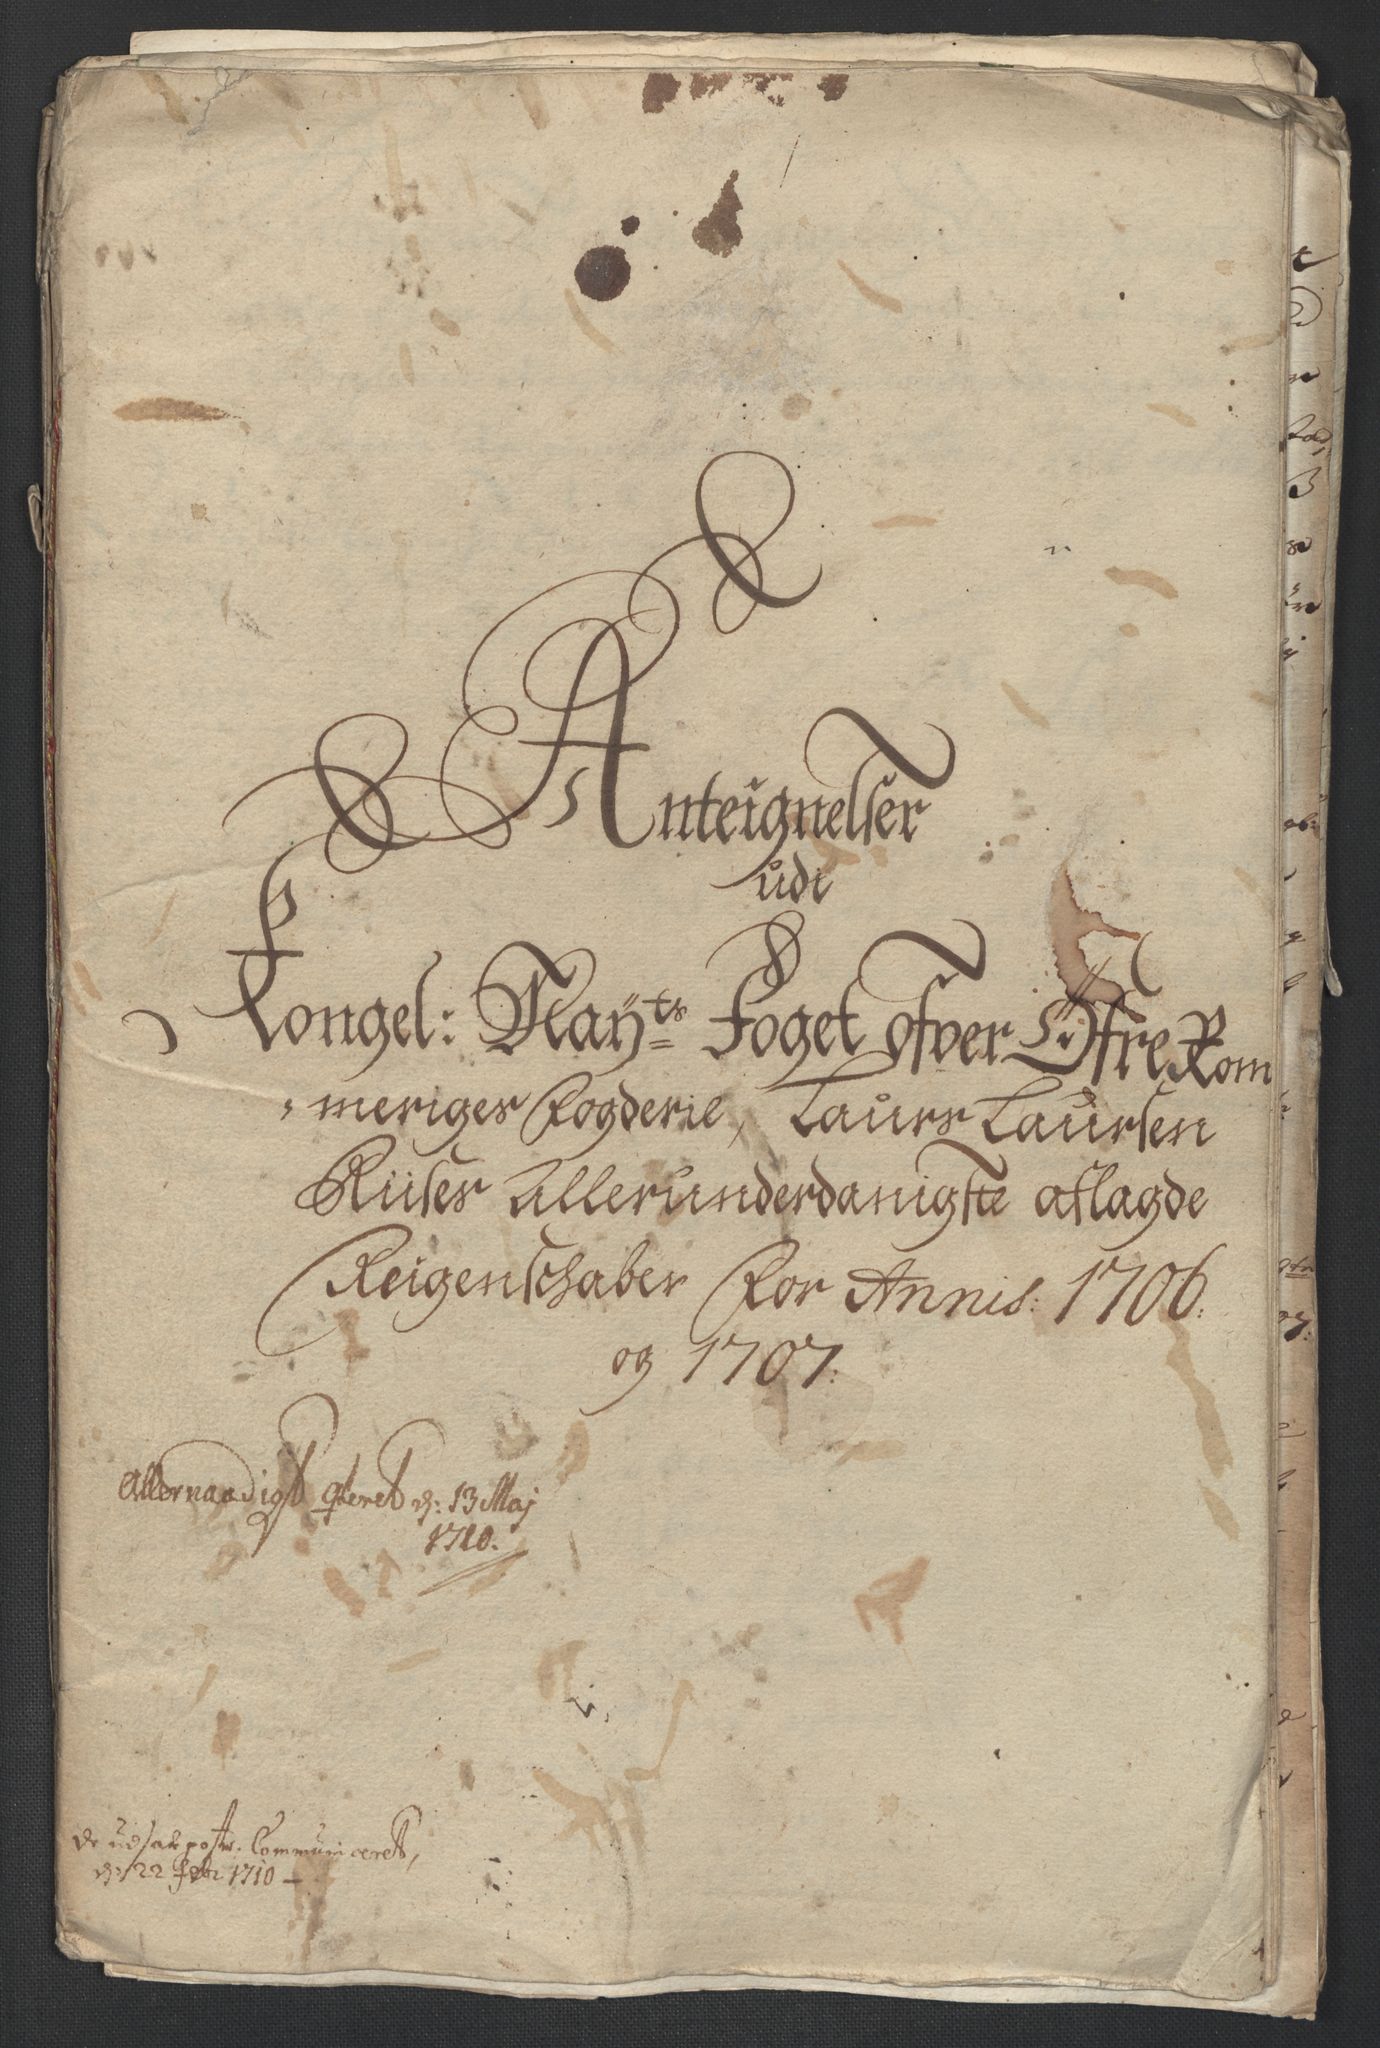 Anteignelser
udi
Kongel: Mayts Foget ofver Øfre Rom
meriges Fogderie, Laurs Laursen
Riises Allerunderdanigste aflagde
Reigenschaber For Annis: 1706.
og 1707.
Allernaadigst qteret d: 13 Maj
1710.
de udsatte poster Communiceret,
d: 22 febr 1710